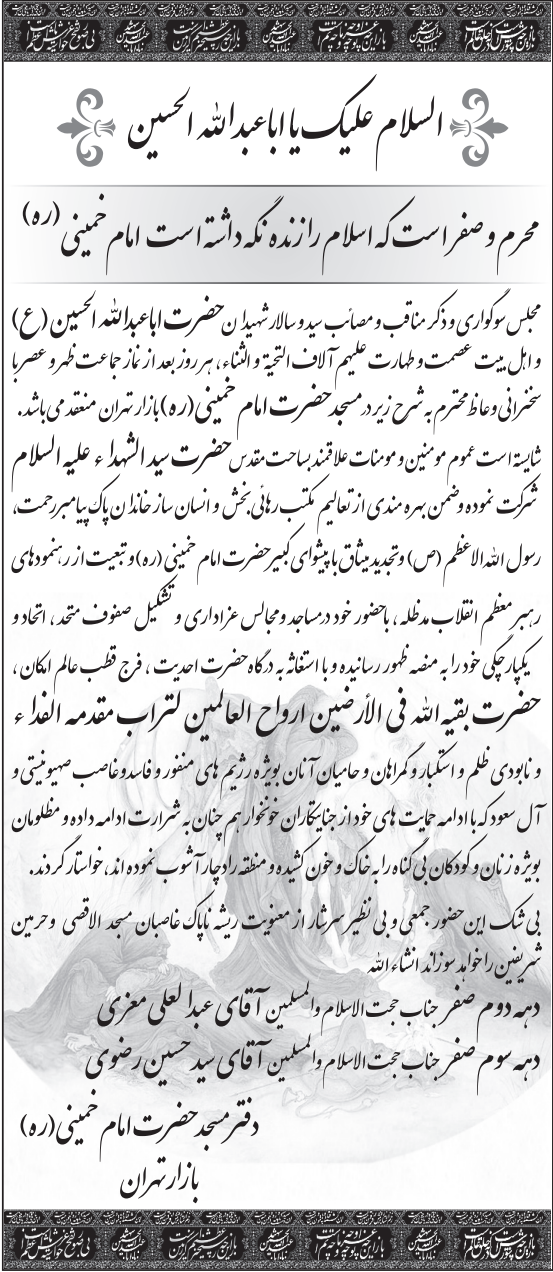 السلام علیک یا اباعبدالله الحسین
محرم و صفر است که اسلام را زنده نگه داشته است امام خمینی (ره)
مجلس سوگواری و ذکر مناقب و مصائب سید و سالار شهیدان حضرت اباعبدالله الحسین (ع)
و اهل بیت عصمت و طهارت علیهم آلاف التحیة و الثناء، هر روز بعد از نماز جماعت ظهر و عصر با
سخنرانی وعاظ محترم به شرح زیر در مسجد حضرت امام خمینی (ره) بازار تهران منعقد می باشد.
شایسته است عموم مومنین و مومنات علاقمند بساحت مقدس حضرت سید الشهداء علیه السلام
شرکت نموده و ضمن بهره مندی از تعالیم مکتب رهائی بخش و انسان ساز خاندان پاک پیامبر رحمت،
رسول الله الاعظم (ص) و تجدید میثاق با پیشوای کبیر حضرت امام خمینی (ره) و تبعیت از رهنمودهای
رهبر معظم انقلاب مدظله، باحضور خود درمساجد ومجالس عزاداری و تشکیل صفوف متحد، اتحاد و
یکپارچگی خود را به منصه ظهور رسانیده و با استغاثه به درگاه حضرت احدیت، فرج قطب عالم امکان،
حضرت بقیه الله فی الأرضین ارواح العالمین لتراب مقدمه الفداء
و نابودی ظلم و استکبار و گمراهان و حامیان آنان بویژه رژیم های منفور و فاسد و غاصب صهیونیستی و
آل سعود که با ادامه حمایت های خود از جنایتکاران خونخوار هم چنان به شرارت ادامه داده و مظلومان
بویژه زنان و کودکان بی گناه را به خاک و خون کشیده و منطقه را دچار آشوب نموده اند، خواستار گردند.
بی شک این حضور جمعی و بی نظیر سرشار از معنویت ریشه ناپاک غاصبان مسجد الاقصی و حرمین
شریفین را خواهد سوزاند انشاءالله
دهه دوم صفر جناب حجت الاسلام والمسلمین آقای عبدالعلی معزی
دهه سوم صفر جناب حجت الاسلام والمسلمین آقای سید حسین رضوی
دفتر مسجد حضرت امام خمینی (ره)
بازار تهران